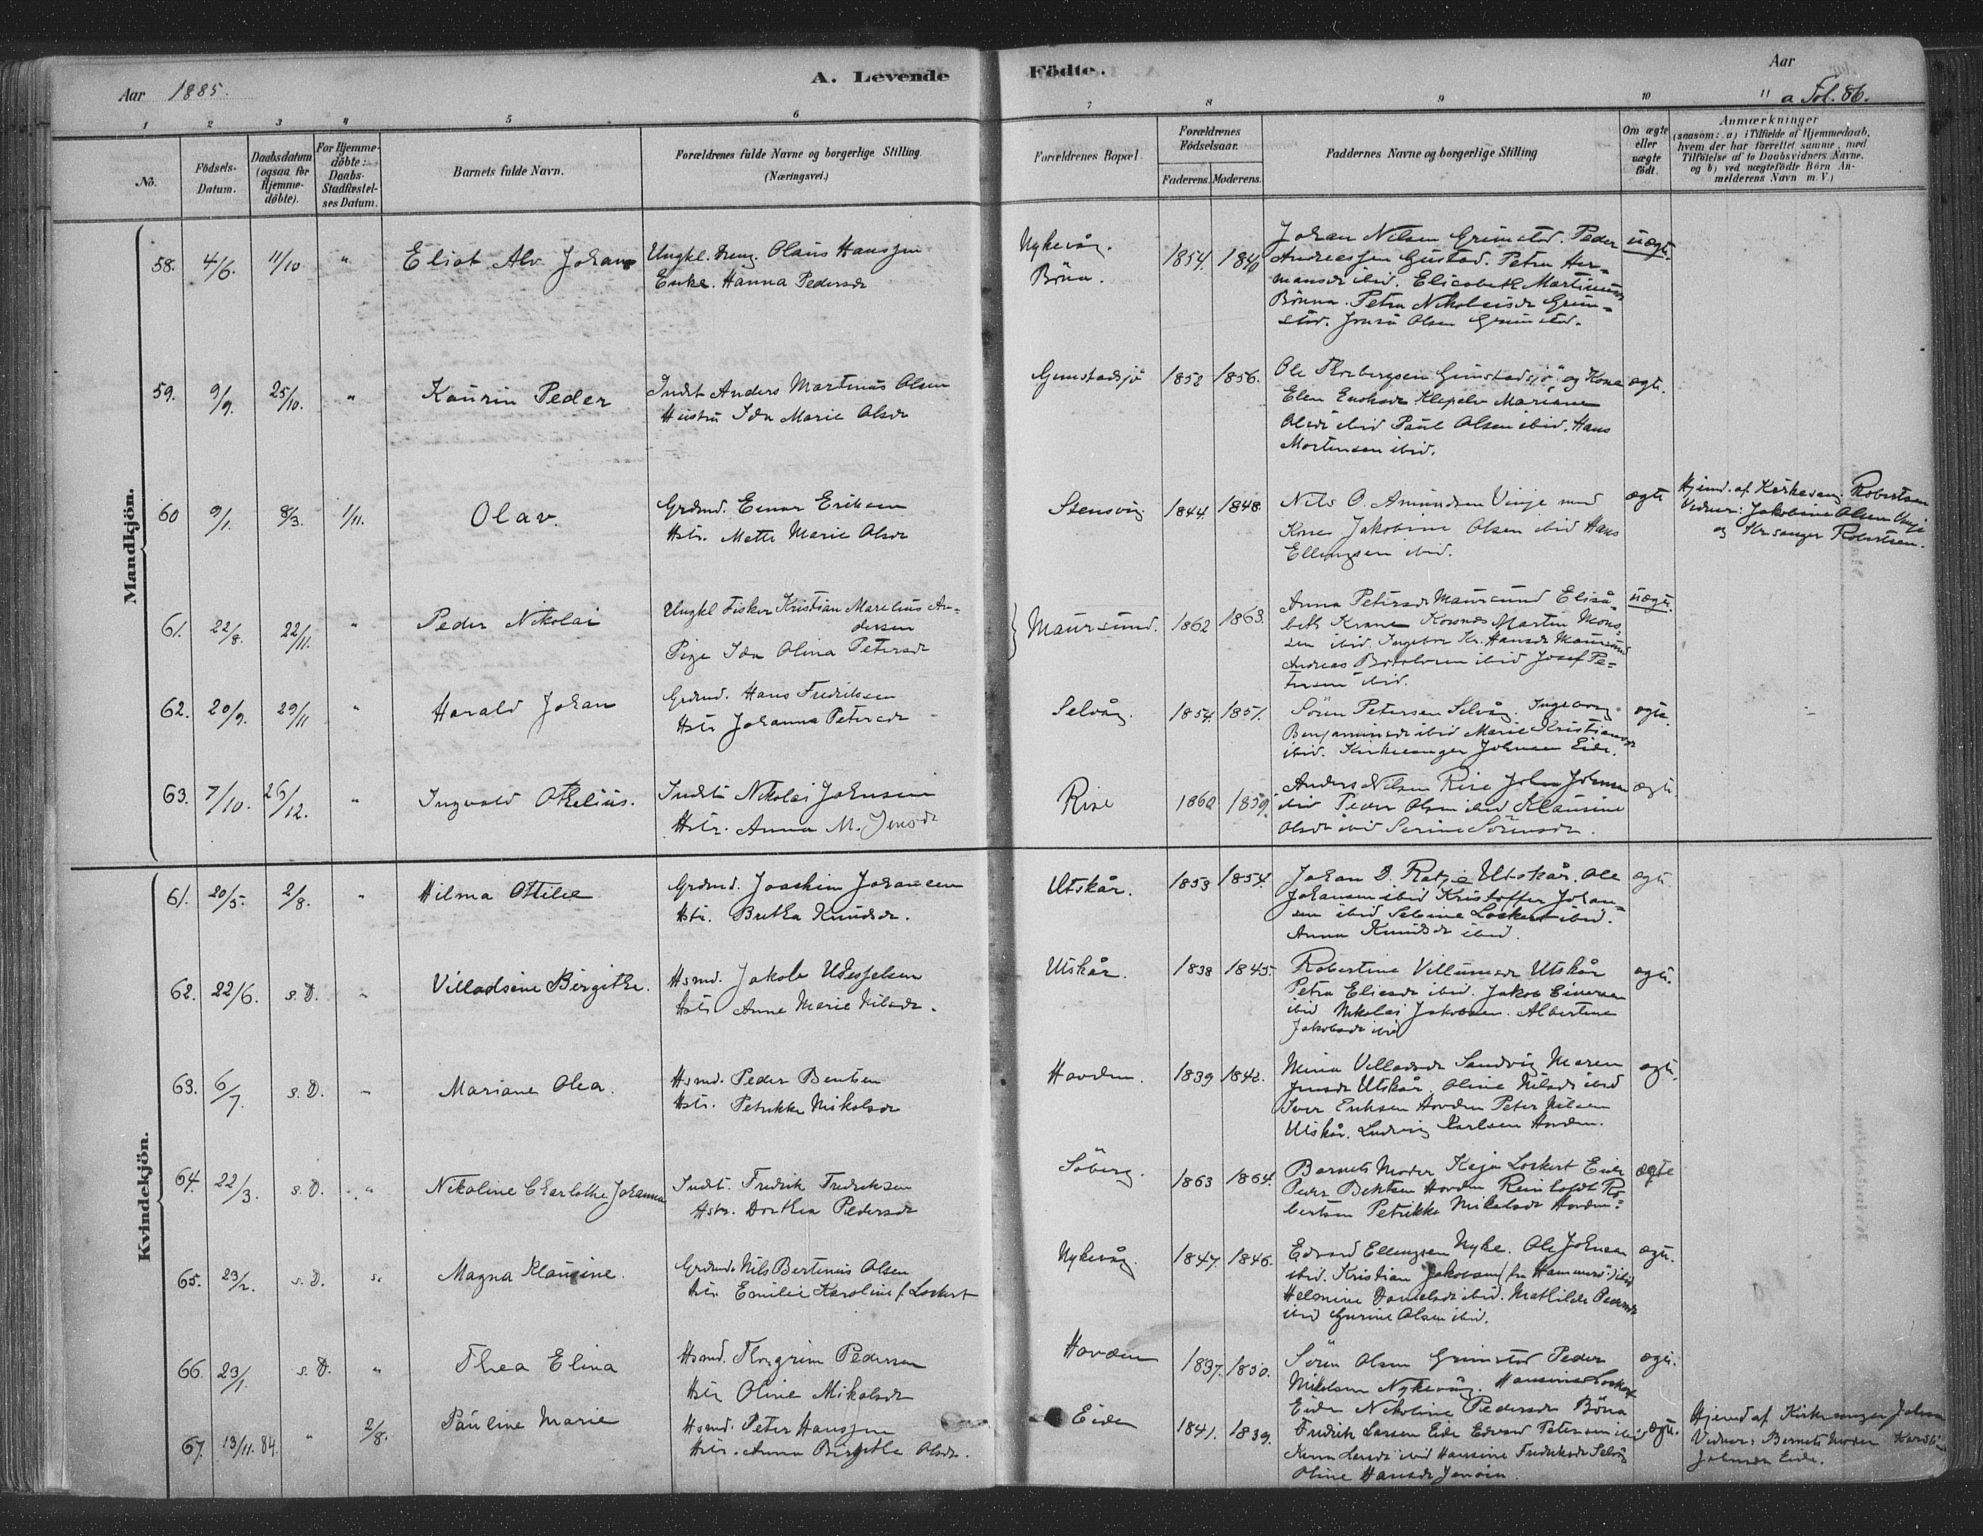 Aar 1885.
A. Levende Födte.
Aar
a Fol. 86.
1 2 3 4 5 6 7 8 9 10 11
No.
Födsels-Datum.
Daabsdatum (ogsaa for Hjemme-døbte).
For Hjemme-döbte: Daabs-Stadfæstel-ses Datum.
Barnets fulde Navn.
Forældrenes fulde Navne og borgerlige Stilling.
(Næringsvei.)
Forældrenes Bopæl.
Forældrenes Födselsaar.
Faderens. Moderens.
Faddernes Navne og borgerlige Stilling
Om ægte eller uægte födt.
Anmærkninger
(saasom: a) i Tilfælde af Hjemmedaab,
hvem der har forrettet samme, med
Tilföielse af to Daabsvidners Navne.
og b) ved uægtefödte Börn An-
melderens Navn m. V.)
Mandkjön.
58. 4/6. 11/10 " Eliot Alv Johan
Ungkl. Olaus Hanssen
Enke. Hanna Pedersdr
Nykevåg.
Bönn.
1854. 1840
Johan Nilsen Grimstad. Peder
Andreassen Gustad. Petra Her-
mansdr ibid. Elisabeth Martinus
Bönna. Petra Nikolaisdr Grim-
stad. Olsen Grimstad.
uægt.
59. 9/9. 25/10. " Kaurin Peder
Indst Anders Martinus Olsen
Hustru Ida Marie Olsdr
Gimstadsjö 1852 1856.
Ole Thorbergsen Gimstadsjö og Kone
Elen Enoksdr Klepelv Mariane
Olsdr ibid Paul Olsen ibid. Hans
Mortensen ibid.
ægt.
60 9/1. 8/3. 1/11. Olav.
Grdmd. Einar Eriksen
Hstr. Mette Marie Olsdr
Stensvig 1844. 1848
Nils O. Amundsen Vinje med
Kone Jakobine Olsen ibid Hans
Ellingsen ibid.
ægte
Hjemd. af Kirkesang. Robertsen
Vidner: Jakobine Olsen Vinje
og Kr.sanger Robertsen.
61. 22/8. 22/11. " Peder Nikolai
Ungkl Fisker Kristian Marelius An-
dersen
Pige Ida Olina Petersdr
Maursund. 1862 1863.
Anna Petersdr Maursund Elisa-
beth Krane Martin Mons-
sen ibid. Ingebor Kr. Hansdr Maursund
Andreas ibid Josef Pe-
tersen ibid.
uægt.
62. 20/9. 29/11 " Harald Johan
Grdmd. Hans Fredriksen
Hstr Johanna Petersdr
Selvåg. 1854. 1851.
Sören Petersen Selvåg. Ingeborg
Benjaminsdr ibid Marie Kristiansdr
ibid. Kirkesanger Johnsen Eide.
ægte.
63. 7/10. 26/12. " Ingvald Othelius.
Indst Nikolai Johnsen
Hstr. Anna M. Jensdr
Rise 1862 1859.
Anders Nilsen Rise John Johnsen
ibid Peder Olsen ibid Klausine
Olsdr ibid Serine Sörensdr.
ægt.
Kvindekjön.
61. 20/5. 2/8. " Hilma Ottilie
Grdmd. Joachim Johansen
Hstr. Bertha Knudsdr.
Utskår. 1853 1854.
Johan D. Utskår. Ole
Johansen ibid Kristoffer Johan-
sen ibid Selvine Lockert ibid.
Anna Knudsdr ibid.
ægt.
62. 22/6. s. D. " Villadsine Birgithe.
Hsmd. Jakob
Hstr Anne Marie Nilsdr.
Utskår. 1838 1845.
Robertine Villumsdr Utskår
Petra Eliasdr ibid. Jakob Einersen
ibid Nikolai Jakobsen. Albertine
Jakobsdr ibid
ægt.
63. 6/7. s. D. " Mariane Olea.
Hsmd. Peder Bentsen
Hstr. Petrikke Nikolsdr
Hovden. 1839 1842.
Mina Villadsdr Sandvig Maren
Jensdr Utskår. Oline Nilsdr ibid
Iver Eriksen Hovden Peter Nilsen
Utskår. Ludvig Karlsen Hovden.
ægt.
64. 22/3. s. D. " Nikoline Charlothe Johanna
Indst. Fredrik Fredriksen
Hstr. Dorthea Pedersdr
Söberg. 1863 1864.
Barnets Moder Kaja Lockert Eide
Peder Bentsen Hovden Reinholdt Ro-
bertsen Petrikke Nikolsdr Hovden.
ægte
65. 23/2. s. D. " Magna Klausine.
Grdmd Nils Bertinius Olsen
Hstr Emilie Karoline f. Lockert
Nykevåg. 1847. 1846.
Edvard Ellingsen Nyke. Ole Johnsen
ibid. Kristian Jakobsen (fra Hammerö) ibid
Helmine Danielsdr ibid. Mathilde Pedersdr
ibid Gurine Olsen ibid.
ægt.
66. 23/1. s. D. " Thea Elina
Hsmd. Thorgrim Pedersen
Hstr Oline Mikalsdr
Hovden 1837. 1850.
Sören Olsen Grimstad Peder
Mikalsen Nykevåg. Hansine Lockert
Eide Nikoline Pedersdr Böna
ægt.
67. 13/11. 84. " 2/8. Pauline Marie
Hsmd. Peter Hanssen
Hstr. Anna Birgitte Olsdr.
Eide 1841. 1839.
Fredrik Larsen Eide Edvard Petersen ibid
Larsdr ibid Hansine Fredriksdr Selvåg
Oline Hansdr
ægt.
Hjemd af Kirkesanger Johnsen
Vidner: Barnets Moder
Johnsen Eide.